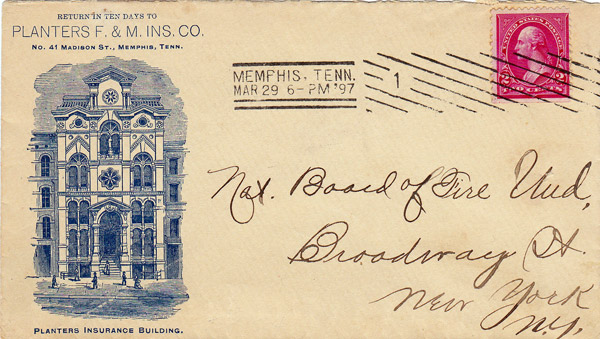 RETURN IN TEN DAYS TO
PLANTERS F. & M. INS. CO.
No. 41 MADISON ST., MEMPHIS, TENN.
MEMPHIS, TENN.
MAR 29 6-PM '97
1
UNITED STATES POSTAGE
2 2
Nat. Board of Fire Und,
Broadway St.
New York
N.Y.
PLANTERS INSURANCE BUILDING.